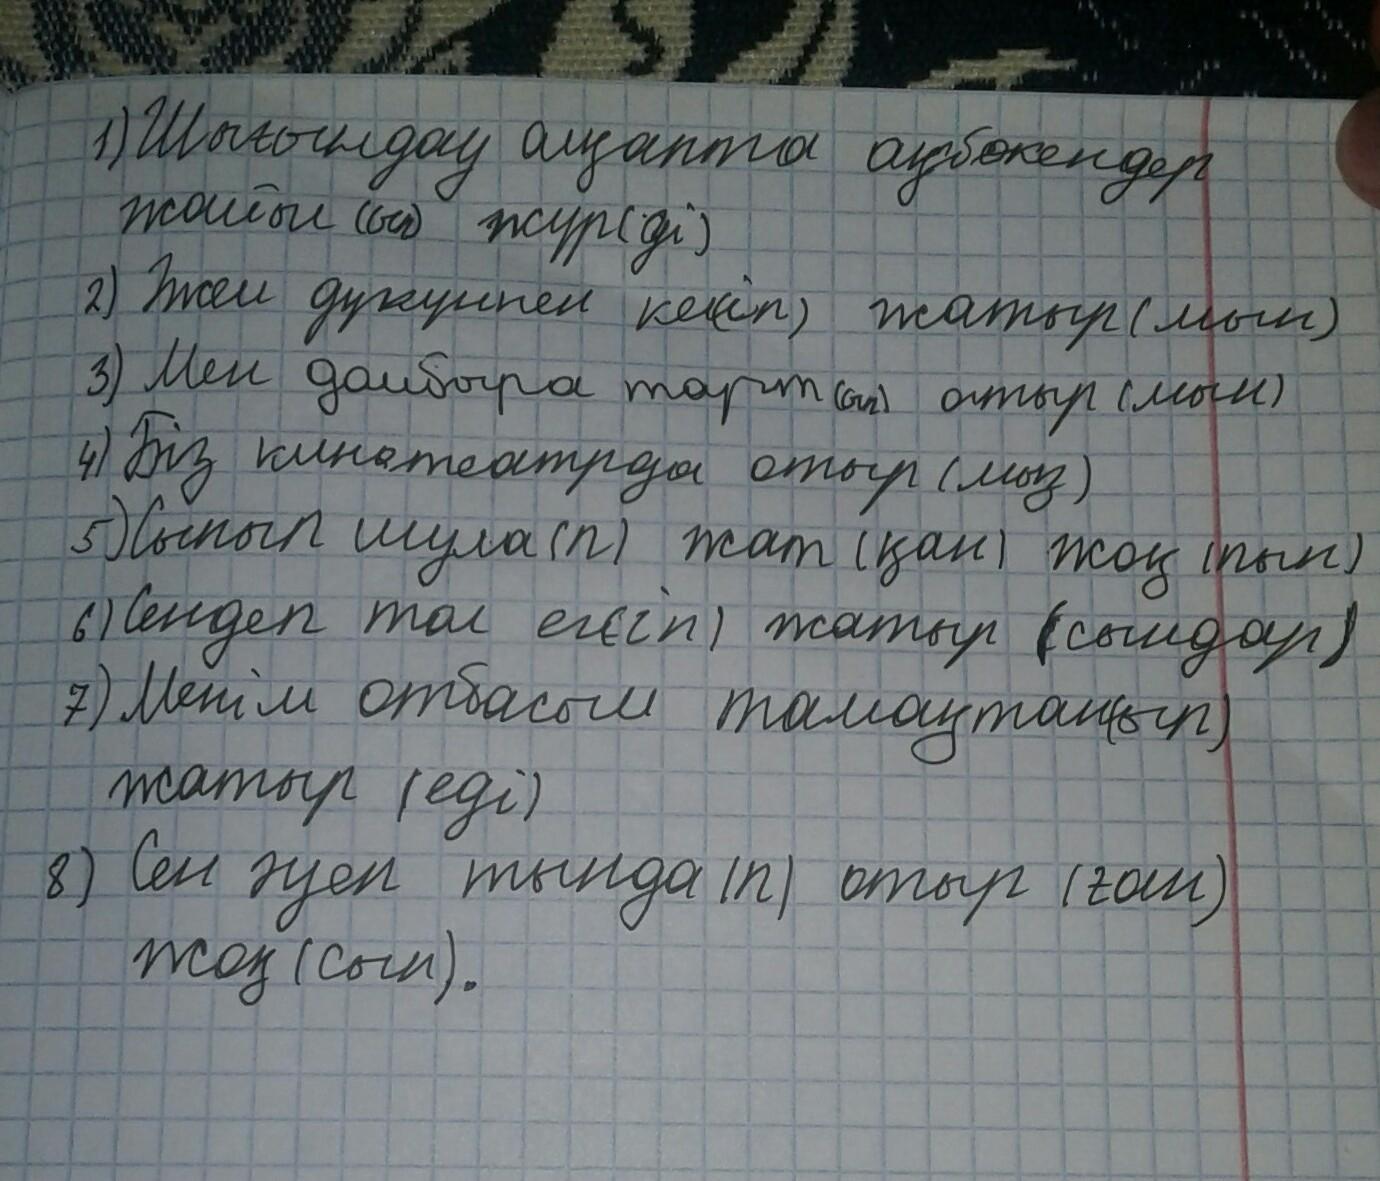 1) Шығындау алқапта ақбөкендер
жайыл(ып) жүр(ді)
2) Мен дүкеннен кел(іп) жатыр(мын)
3) Мен домбыра тарт(ып) отыр(мын)
4) Біз кинотеатрда отыр(мыз)
5) Сынып шула(п) жат(қан) жоқ(пын)
6) Сендер тал ег(іп) жатыр(сыңдар)
7) Менім отбасым тамақтан(ып)
жатыр (еді)
8) Сен әуен тыңда(п) отыр(ған)
жоқ(сың).